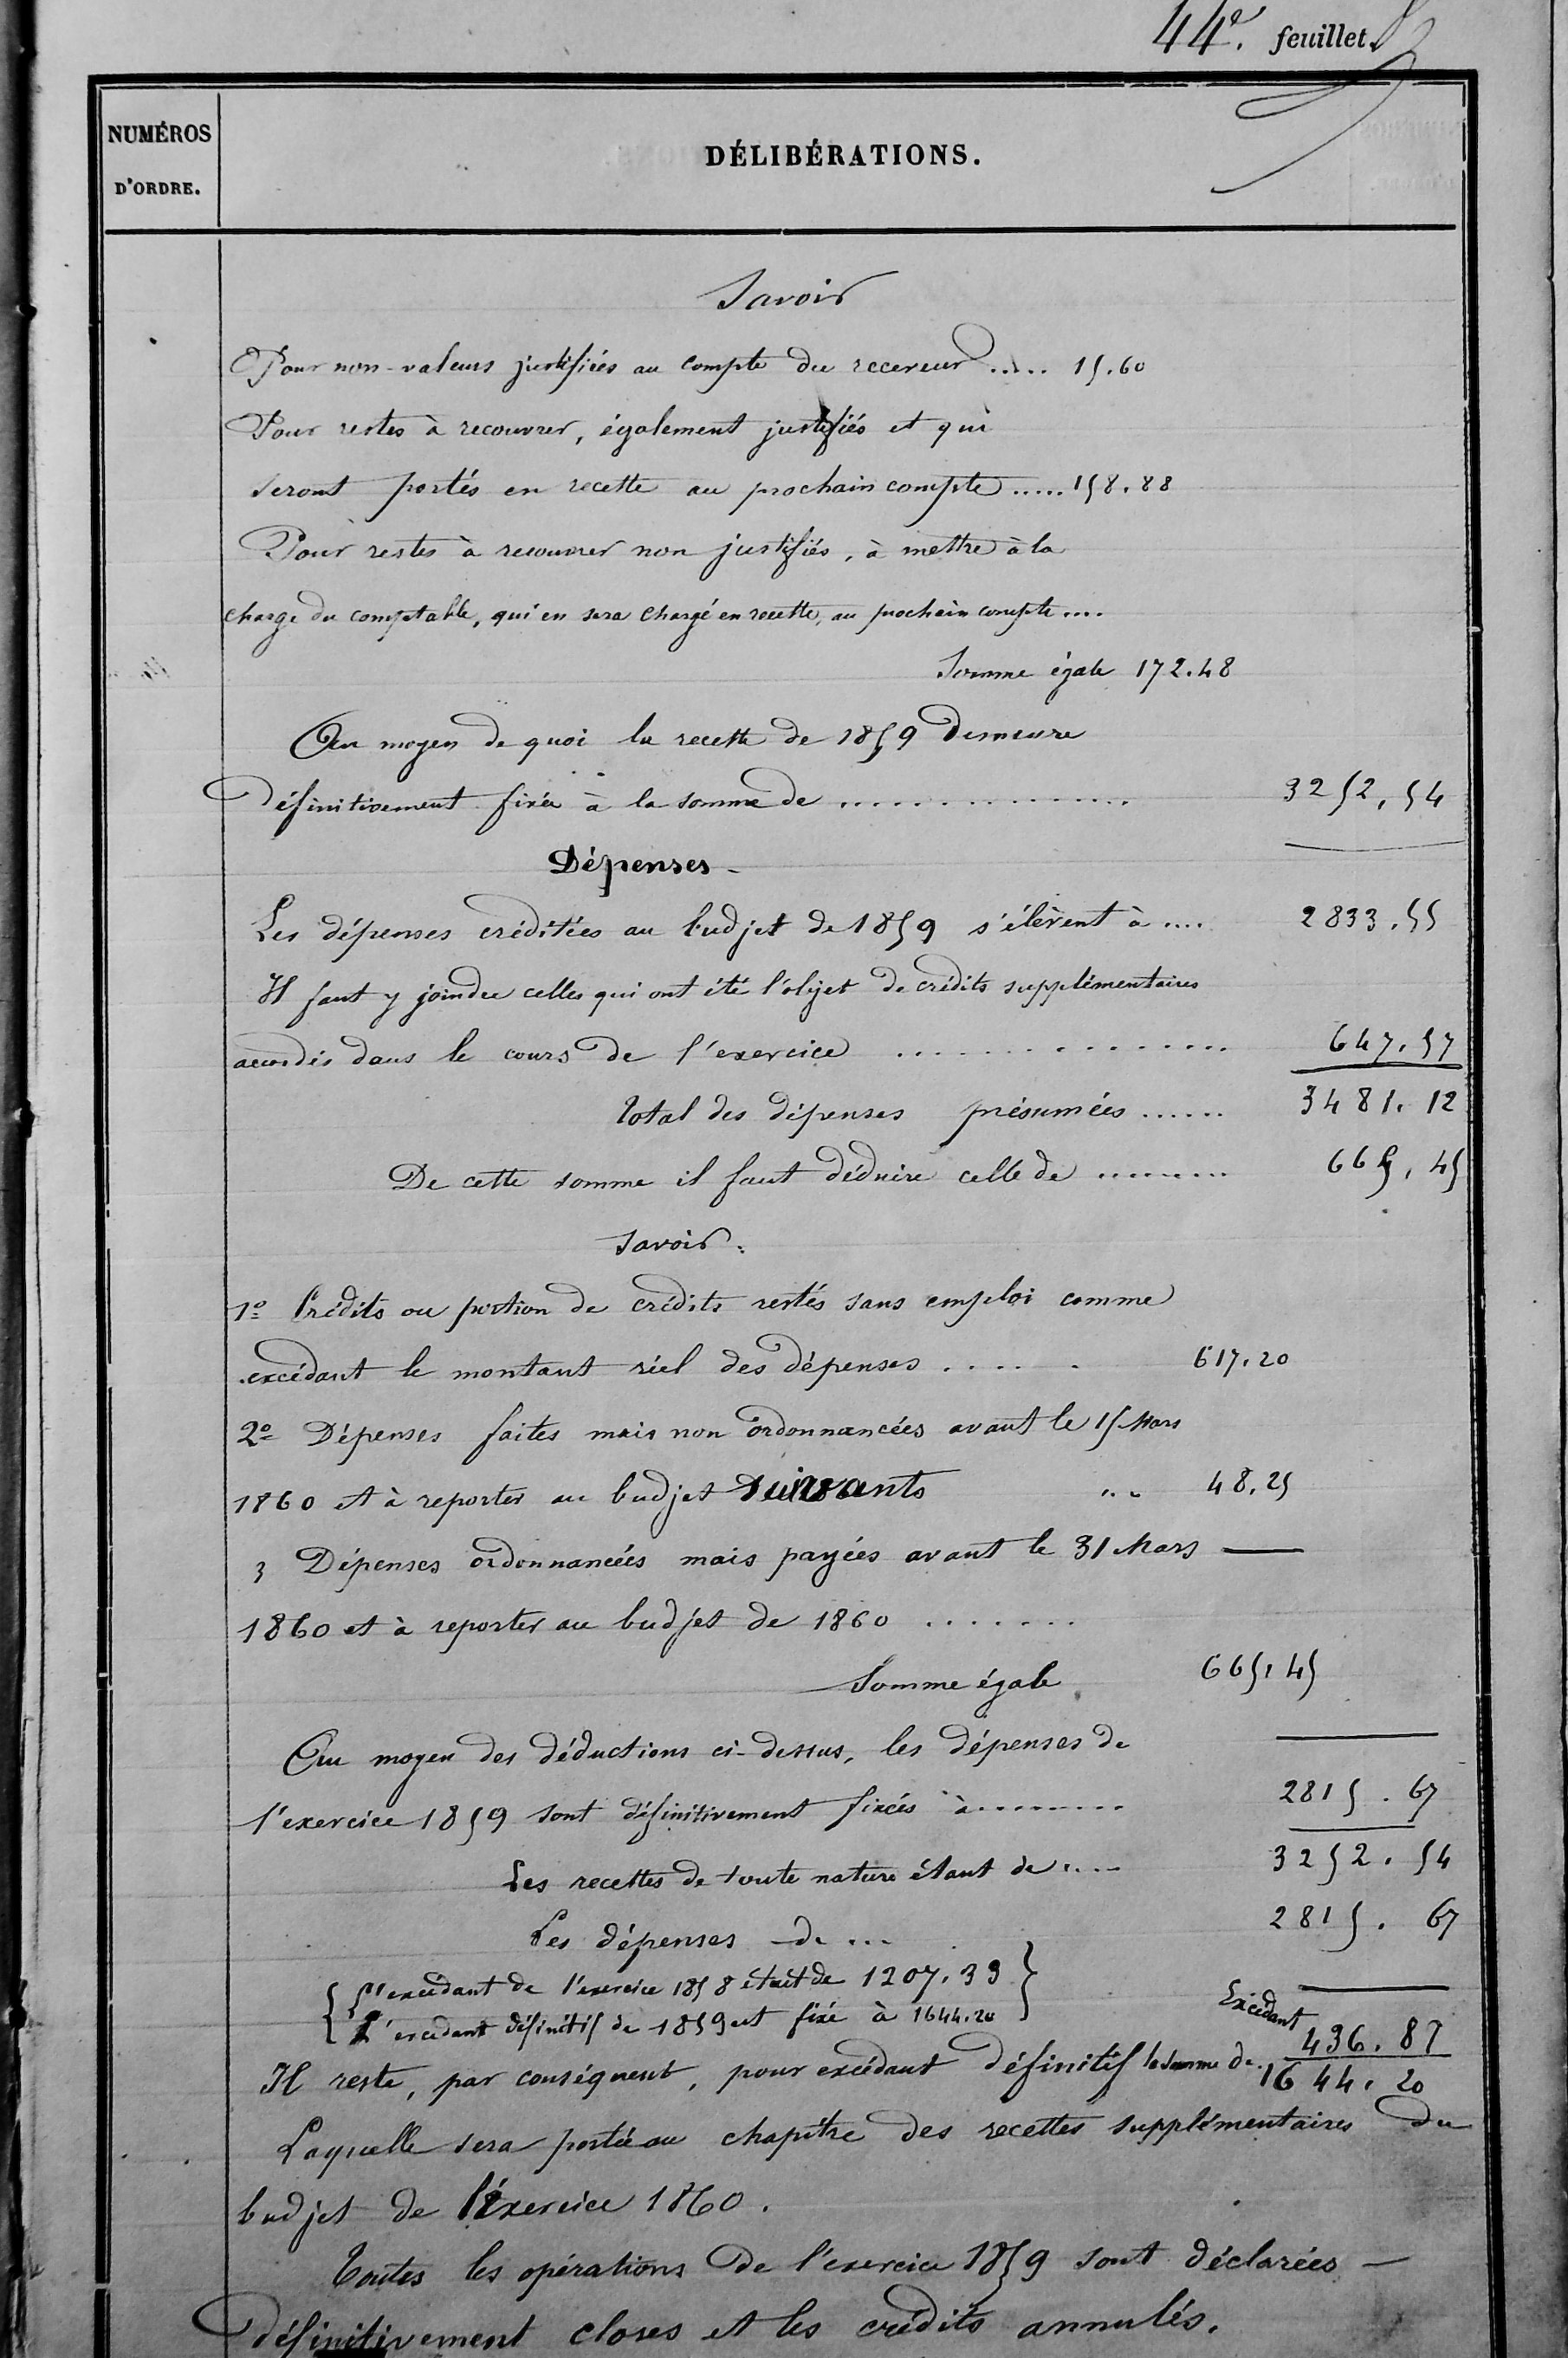 44e. feuillet.
NUMÉROS
D'ORDRE.
DÉLIBÉRATIONS.
Savoir
Pour non-valeurs justifiées au compte du receveur ..... 15.60
Pour restes à recouvrer, également justifiés et qui
seront portés en recette au prochain compte ..... 158.88
Pour restes à recouvrer non justifiés, à mettre à la
charge du comptable, qui en sera chargé en recette, au prochain compte ....
Somme égale 172.48
Au moyen de quoi la recette de 1859 demeure
définitivement fixée à la somme de ............... 3252.54
Dépenses -
Les dépenses créditées au budjet de 1859 s'élèvent à .... 2833.55
Il faut y joindre celles qui ont été l'objet de crédits supplémentaires
accordés dans le cours de l'exercice ............... 647.57
Total des dépenses présumées ...... 3481.12
De cette somme il faut déduire celle de ........ 665.45
savoir:
1º Crédits ou portion de crédits restés sans emploi comme
excédant le montant réel des dépenses ..... 617.20
2º Dépenses faites mais non ordonnancées avant le 15 Mars
1860 et à reporter au budjet suivants .. 48.25
3 Dépenses ordonnancées mais payées avant le 31 Mars —
1860 et à reporter au budjet de 1860 .......
Somme égale 665.45
Au moyen des déductions ci-dessus, les dépenses de
l'exercice 1859 sont définitivement fixées à ......... 2815.67
Les recettes de toute nature étant de .... 3252.54
Les dépenses de ... 2815.67
{ L'excédant de l'exercice 1858 était de 1207.33 }
{ L'excédant définitif de 1859 est fixé à 1644.20 }
Excédant 436.87
Il reste, par conséquent, pour excédant définitif la somme de. 1644.20
Laquelle sera portée au chapitre des recettes supplémentaires du
budjet de l'éxercice 1860.
Toutes les opérations de l'exercice 1859 sont déclarées —
définitivement closes et les crédits annulés.